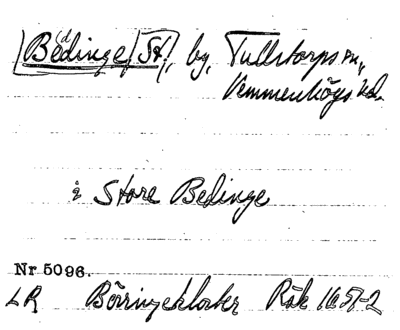 Be(d)dinge, St., by, Tullstorps sn.,
Vemmenhögs hd.
i Store Bedinge
Nr 5096.
LR Börringekloster Räk 1651-2